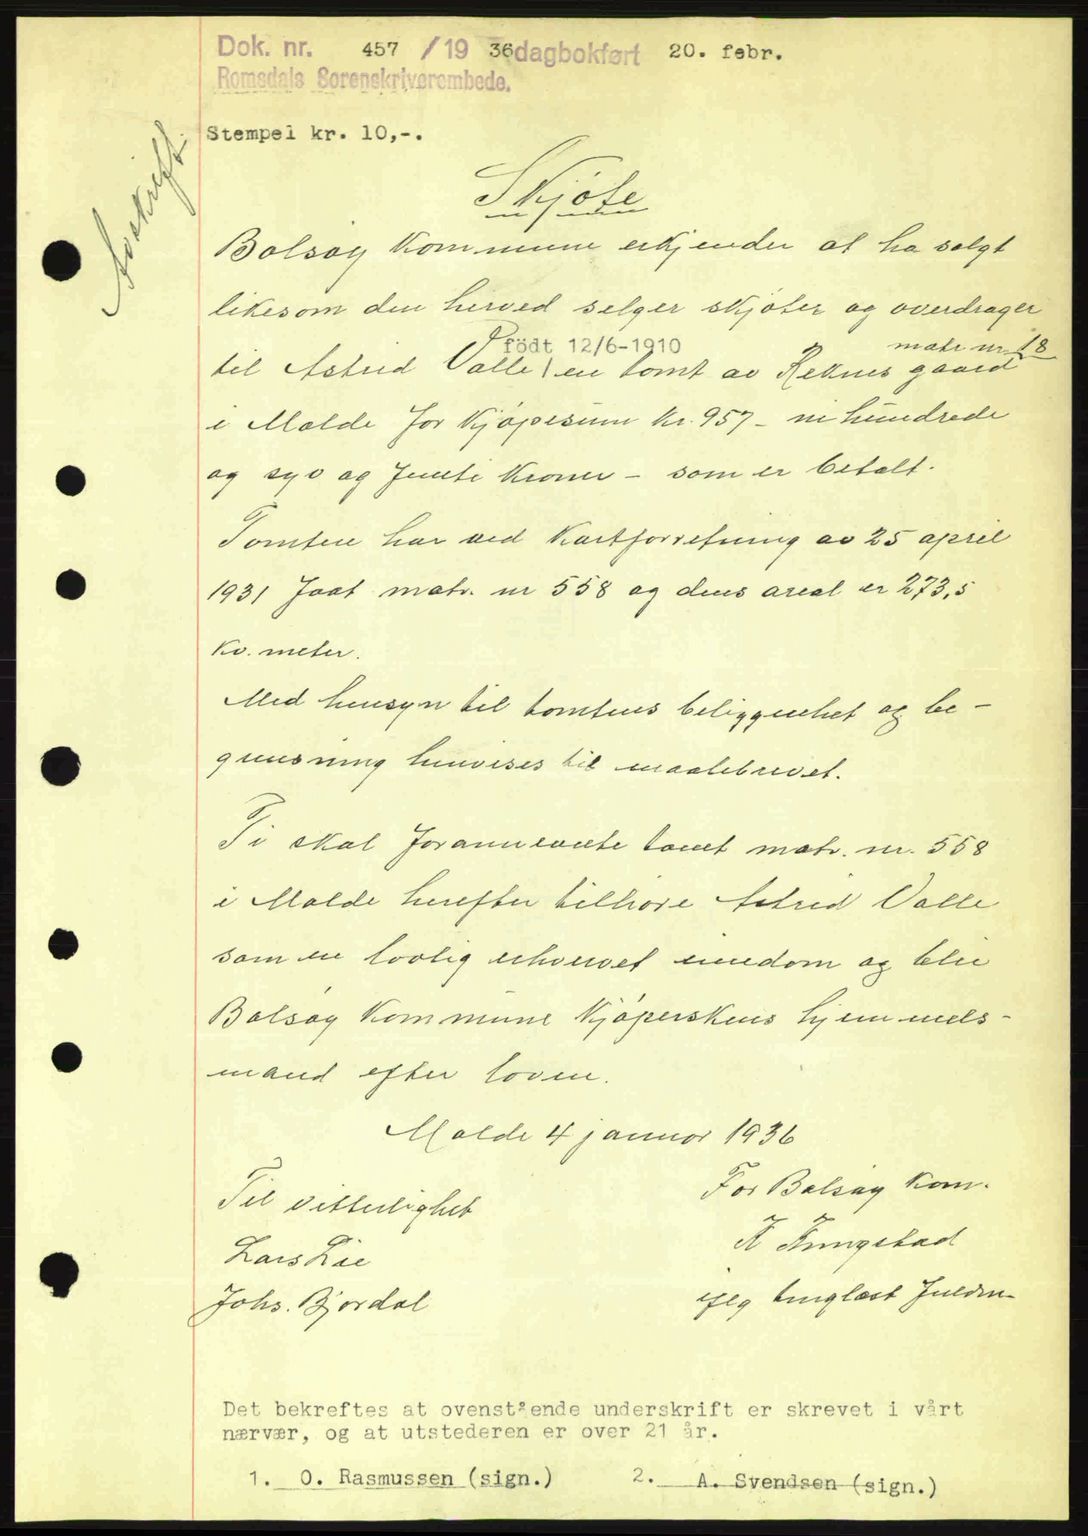 Dok. nr. 457 /19 36 dagbokført 20. febr.
Romsdals Sorenskriverembede.
Stempel kr. 10,-.
Avskrift.
Skjøte
Bolsøy kommune erkjender at ha solgt
likesom den herved selger skjøter og overdrager
født 12/6-1910 matr nr. 18
til Astrid Valle / en tomt av Reknes gaard
i Molde for kjøpesum kr. 957 - ni hundrede
og syv og femti kroner - som er betalt.
Tomten har ved kartforretning av 25 april
1931 faat matr. nr 558 og dens areal er 273,5
kv. meter.
Med hensyn til tomtens beliggenhet og be-
grensning henvises til maalebrevet.
Ti skal forannevnte tomt matr. nr. 558
i Molde herefter tilhøre Astrid Valle
som en lovlig erhvervet eiendom og blir
Bolsøy kommune kjøperskens hjemmels-
mand efter loven.
Molde 4 januar 1936
Til vitterlighet
For Bolsøy kom.
Lars Lie
K
Johs. Bjordal
iflg tinglæst fuldm
Det bekreftes at ovenstående underskrift er skrevet i vårt
nærvær, og at utstederen er over 21 år.
1. O. Rasmussen (sign.) 2. A. Svendsen (sign.)